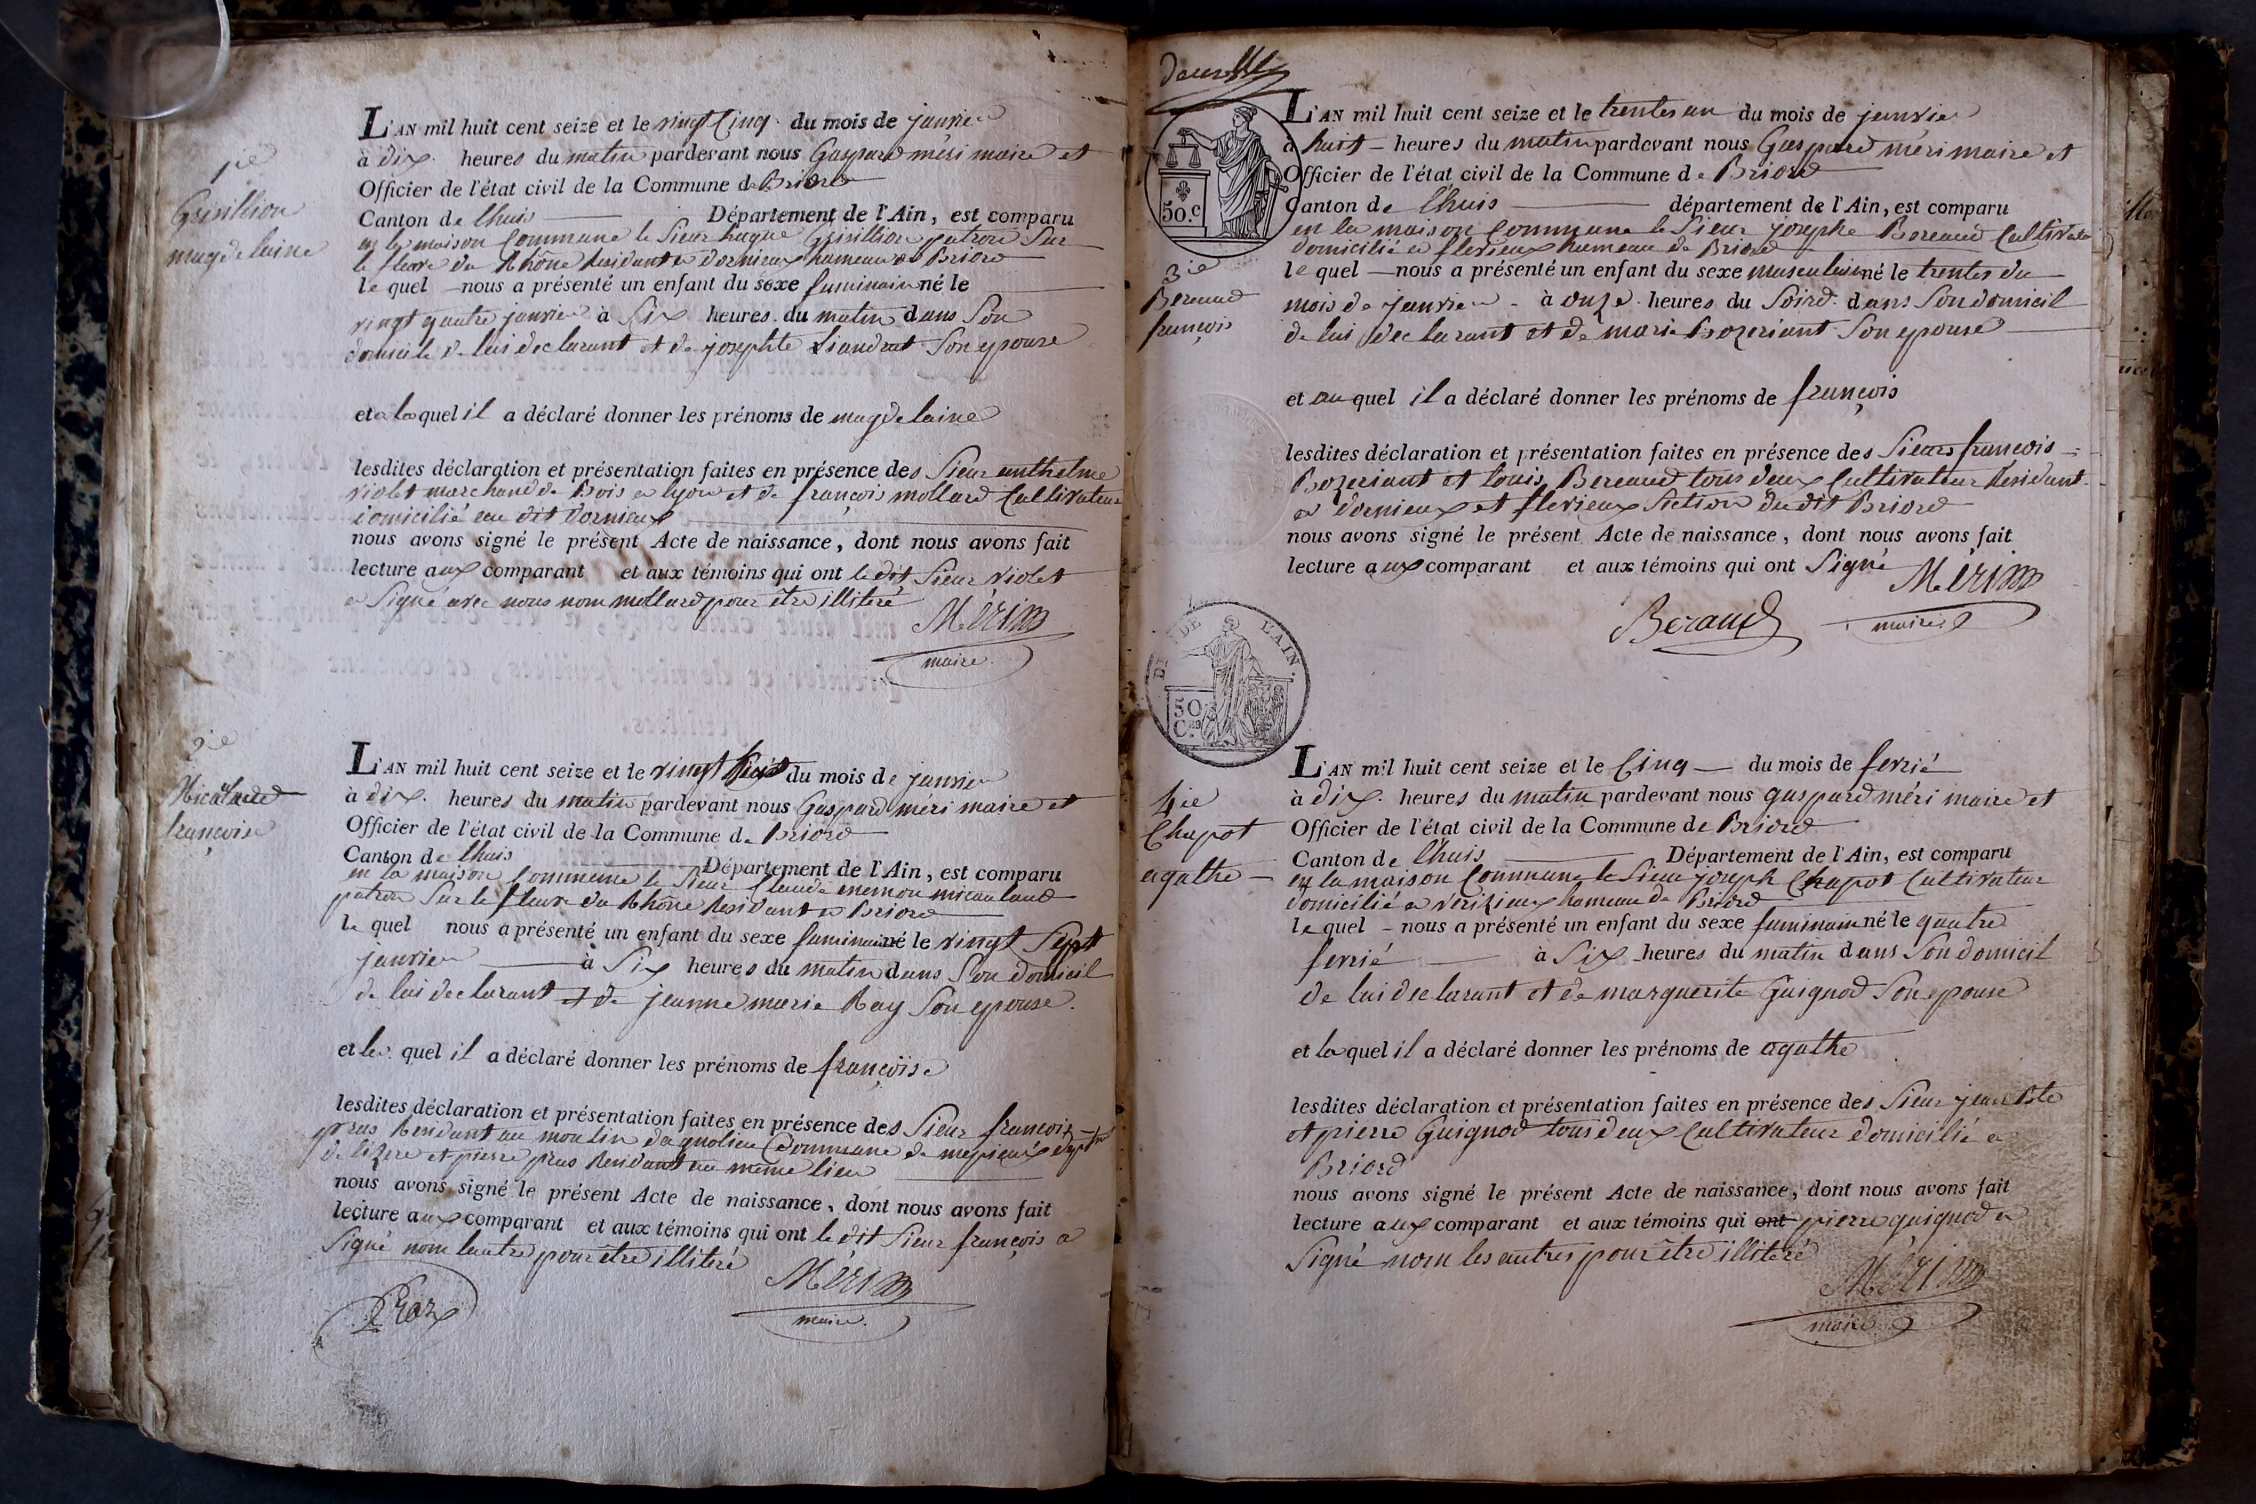 1ie
Grisillion
magdelaine
L'AN mil huit cent seize et le vingt Cinq du mois de janvier
à dix heures du matin pardevant nous Gaspard méri maire et
Officier de l'état civil de la Commune de Briord
Canton de lhuis Département de l'Ain, est comparu
en la maison Commune le Sieur hugue Grisillion patron Sur
le fleuve du Rhône Residant a dornieux hameau de Briord
le quel nous a présenté un enfant du sexe faminain né le
vingt quatre janvier à Six heures du matin dans Son
domicile de lui declarant et de josephte Liandrat Son epouse
et a laquel il a déclaré donner les prénoms de magdelaine
lesdites déclaration et présentation faites en présence des Sieur anthelme
violet marchand de Bois a lyon et de françois mollard Cultivateur
domicilié au dit dornieux
nous avons signé le présent Acte de naissance, dont nous avons fait
lecture aux comparant et aux témoins qui ont le dit Sieur violet
a Signé avec nous nom mollard pour être illiteré
Méri
maire
2ie
Micalaud
françoise
L'AN mil huit cent seize et le vingt huit du mois de janvier
à dix heures du matin pardevant nous Gaspard méri maire et
Officier de l'état civil de la Commune de Briord
Canton de lhuis Département de l'Ain, est comparu
en la maison Commune le Sieur Claude enemon micaulaud
patron Sur le fleuve du Rhône Residant a Briord
le quel nous a présenté un enfant du sexe faminain né le vingt Sept
janvier à Six heures du matin dans Son domicil
de lui declarant et de jeanne marie Ray Son epouse.
et la quel il a déclaré donner les prénoms de françoise
lesdites déclaration et présentation faites en présence des Sieur françois
pras Residant au moulin dagnolieu Commune de mepieux dept
de lizere et pierre pras Residant au même lieu
nous avons signé le présent Acte de naissance, dont nous avons fait
lecture aux comparant et aux témoins qui ont le dit Sieur françois a
Signé nom lautre pour être illiteré
Praz
Méri
maire
deux
50.c
3ie
Bereaud
françois
L'AN mil huit cent seize et le trentes un du mois de janvier
à huit heures du matin pardevant nous Gaspard méri maire et
Officier de l'état civil de la Commune de Briord
Canton de lhuis département de l'Ain, est comparu
en la maison Commune le Sieur josephe Bereaud Cultivateur
domicilié a flevieux hameau de Briord
le quel nous a présenté un enfant du sexe masculain né le trentes du
mois de janvier à onze heures du Soird dans Son domicil
de lui declarant et de marie Bozeriant Son epouse
et au quel il a déclaré donner les prénoms de françois
lesdites déclaration et présentation faites en présence des Sieurs francois
Bozeriant et louis Bereaud tous deux Cultivateur Residant
a dornieux et flevieux Section du dit Briord
nous avons signé le présent Acte de naissance, dont nous avons fait
lecture aux comparant et aux témoins qui ont Signé
Méri
Beraud
maire
DE L'AIN.
50
Ces
4ie
Chapot
agathe
L'AN mil huit cent seize et le Cinq du mois de fevrié
à dix heures du matin pardevant nous gaspard méri maire et
Officier de l'état civil de la Commune de Briord
Canton de lhuis Département de l'Ain, est comparu
en la maison Commune le Sieur joseph Chapot Cultivateur
domicilié a verizieux hameau de Briord
le quel nous a présenté un enfant du sexe faminain né le quatre
fevrié à Six heures du matin dans Son domicil
de lui declarant et de marguerite Guignod Son epouse
et la quel il a déclaré donner les prénoms de agathe
lesdites déclaration et présentation faites en présence des Sieur jean Bte
et pierre Guignod tous deux Cultivateur domicilié a
Briord
nous avons signé le présent Acte de naissance, dont nous avons fait
lecture aux comparant et aux témoins qui ont pierre guignod a
Signé nom les autres pour être illiteré
Méri
maire